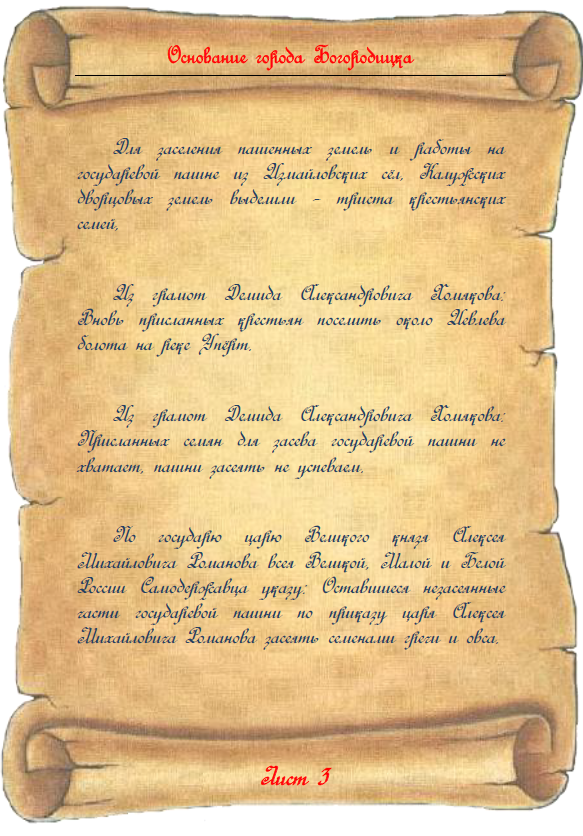 Основание города Богородицка
Для заселения пашенных земель и работы на
государевой пашне из Измайловских сёл, Калужских
дворцовых земель выделили - триста крестьянских
семей.
Из грамот Демида Александровича Хомякова:
Вновь присланных крестьян поселить около Иевлева
болота на реке Упёрт.
Из грамот Демида Александровича Хомякова:
Присланных семян для засева государевой пашни не
хватает, пашни засеять не успеваем.
По государю царю Великого князя Алексея
Михайловича Романова всея Великой, Малой и Белой
России Самодержавца указу: Оставшиеся незасеянные
части государевой пашни по приказу царя Алексея
Михайловича Романова засеять семенами гречи и овса.
Лист 3